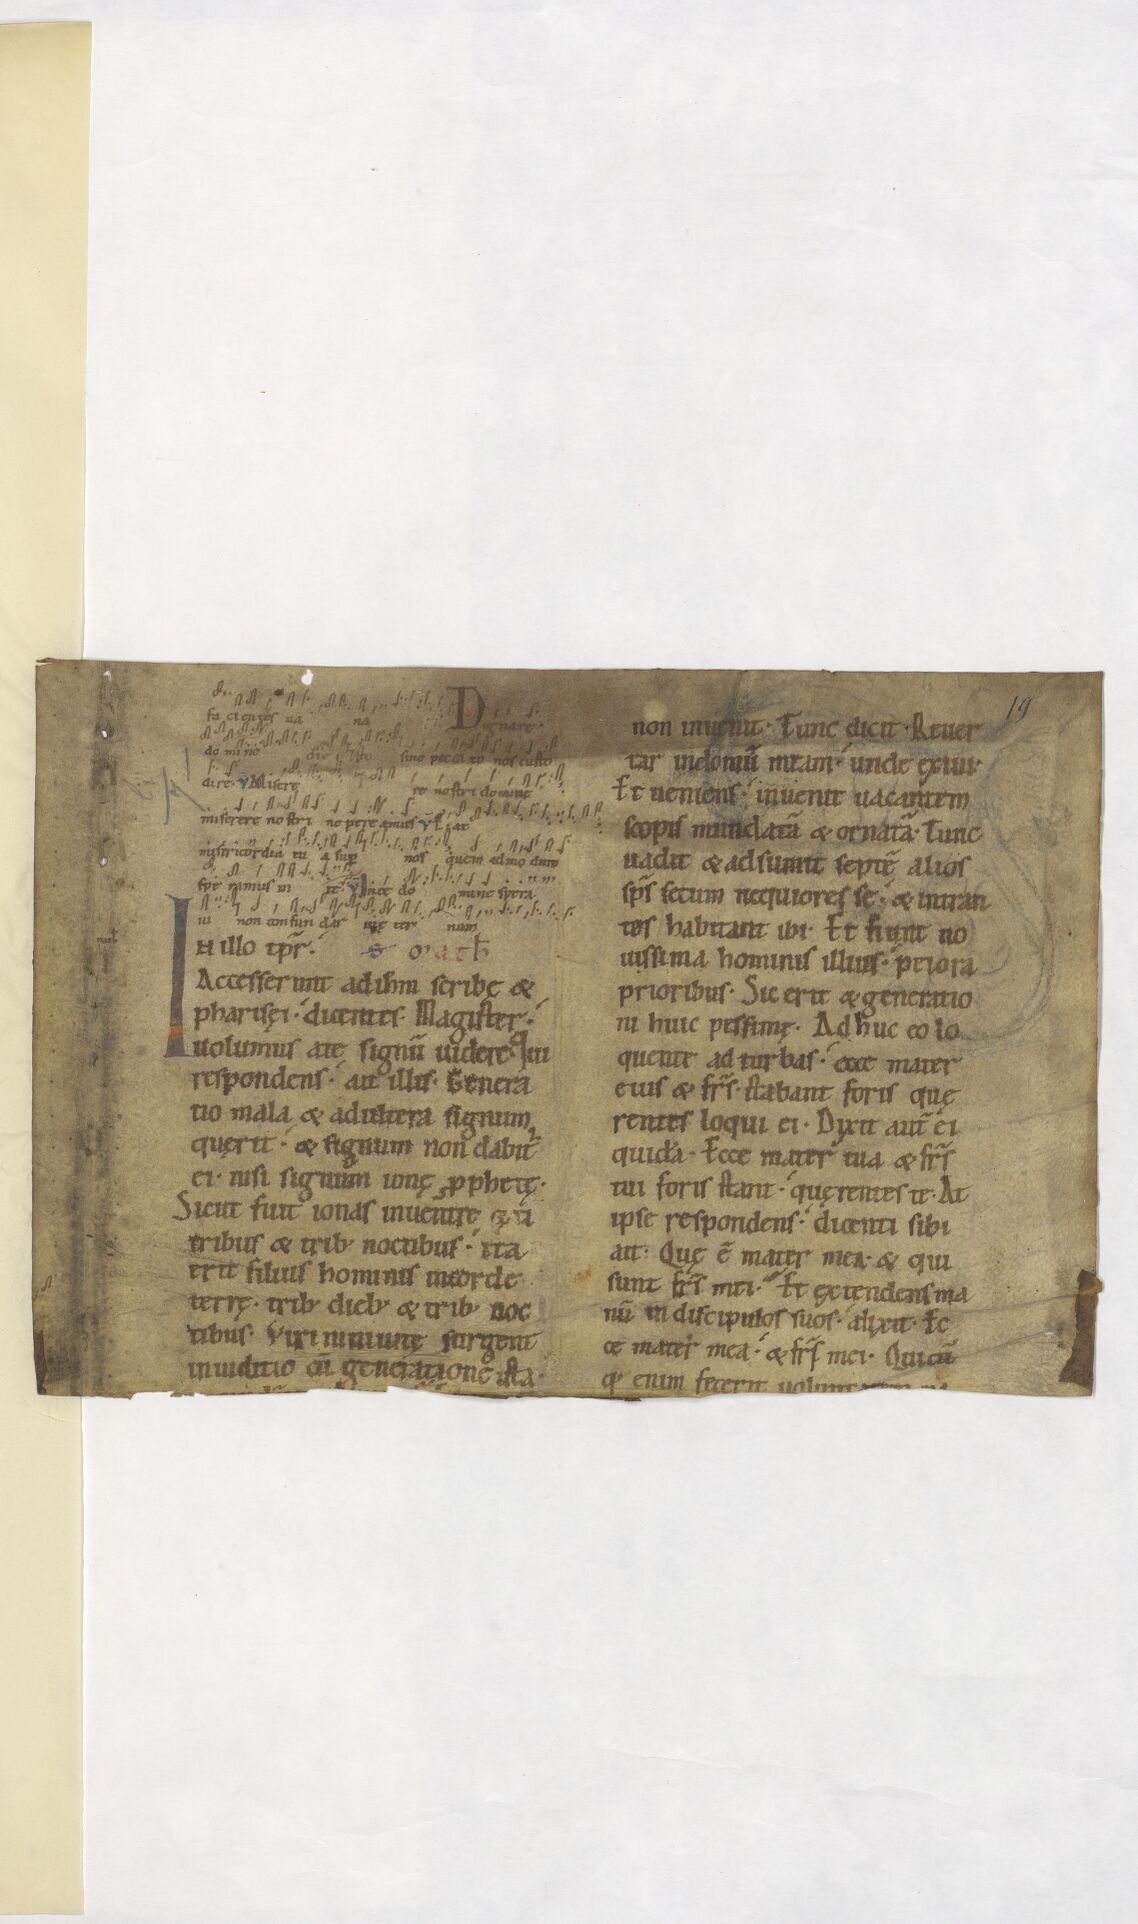 19
facientes ua na Dignare
do mine die isto sine peccato nos custo
dire. V. Misere re nostri domine
miserere nostri ne pere amus V. Fiat
misericordia tu a sup nos quem admo dum
spe ramus in te. V. In te do mine spera
ui non confun dar in ęter num
IN illo tp̄r. S Math
Accesserunt ad ihm scribę &
pharisęi· dicentes· Magister·
uolumus a te signū uidere· Qui
respondens· ait illis· Genera
tio mala & adultera signum
quęrit· & signum non dabit̄
ei· nisi signum ionę pphetę·
Sicut fuit ionas in uentre cęti
tribus & trib; noctibus· ita
erit filius hominis in corde
terrę· trib; dieb; & trib; noc
tibus· Viri niniuitę surgent
in iuditio cū generationē ista·
non inuenit· Tunc dicit· Reuer
tar in domū meam· unde exiui·
Et ueniens· inuenit uacantem
scopis mundatā & ornatā· Tunc
uadit & adsumit septē alios
sp̄s secum nequiores se· & intran
tes habitant ibi· Et fiunt no
uissima hominis illius· peiora
prioribus· Sic erit & generatio
ni huic pessimę· Ad huc eo lo
quente ad turbas· ecce mater
eius & fr̄s· stabant foris quę
rentes loqui ei· Dixit aut̄ ei
quidā· Ecce mater tua & fr̄s
tui foris stant· quęrentes te· At
ipse respondens· dicenti sibi
ait· Quę ē mater mea· & qui
sunt fr̄s mei· Et extendens ma
nū in discipulos suos· dixit· Ec
ce mater mea· & fr̄s mei· Quicū
q; enim fecerit